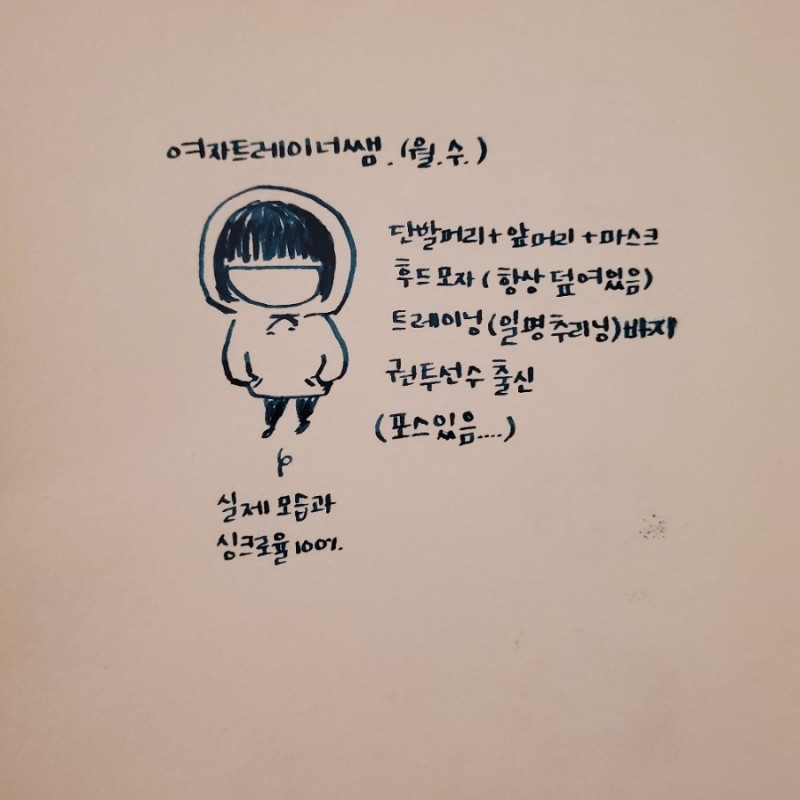 여자트레이너쌤. (월.수.)
단발머리+앞머리+마스크
후드모자 (항상 덮여있음)
트레이닝(일명추리닝)바지
권투선수 출신
(포스있음....)
실제 모습과
싱크로율 100%.